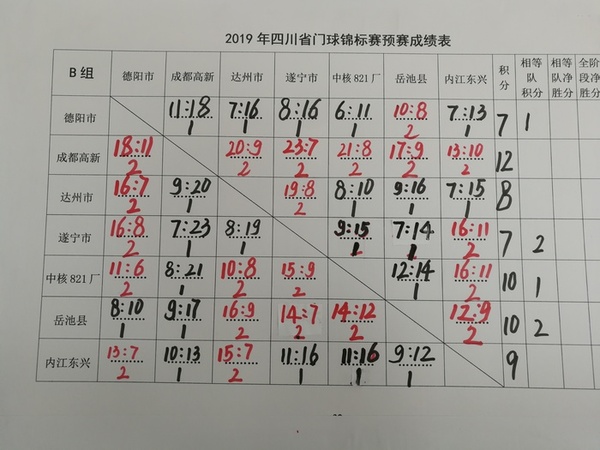 2019 年四川省门球锦标赛预赛成绩表
B 组 德阳市 成都高新 达州市 遂宁市 中核 821 厂 岳池县 内江东兴 积分 相等队积分 相等队净胜分 全阶段净胜分
德阳市 11:18 7:16 8:16 6:11 10:8 7:13 7 1
1 1 1 1 2 1
成都高新 18:11 20:9 23:7 21:8 17:9 13:10 12
2 2 2 2 2 2
达州市 16:7 9:20 19:8 8:10 9:16 7:15 8
2 1 2 1 1 1
遂宁市 16:8 7:23 8:19 9:15 7:14 16:11 7 2
2 1 1 1 1 2
中核 821 厂 11:6 8:21 10:8 15:9 12:14 16:11 10 1
2 1 2 2 1 2
岳池县 8:10 9:17 16:9 14:7 14:12 12:9 10 2
1 1 2 2 2 2
内江东兴 13:7 10:13 15:7 11:16 11:16 9:12 9
2 1 2 1 1 1